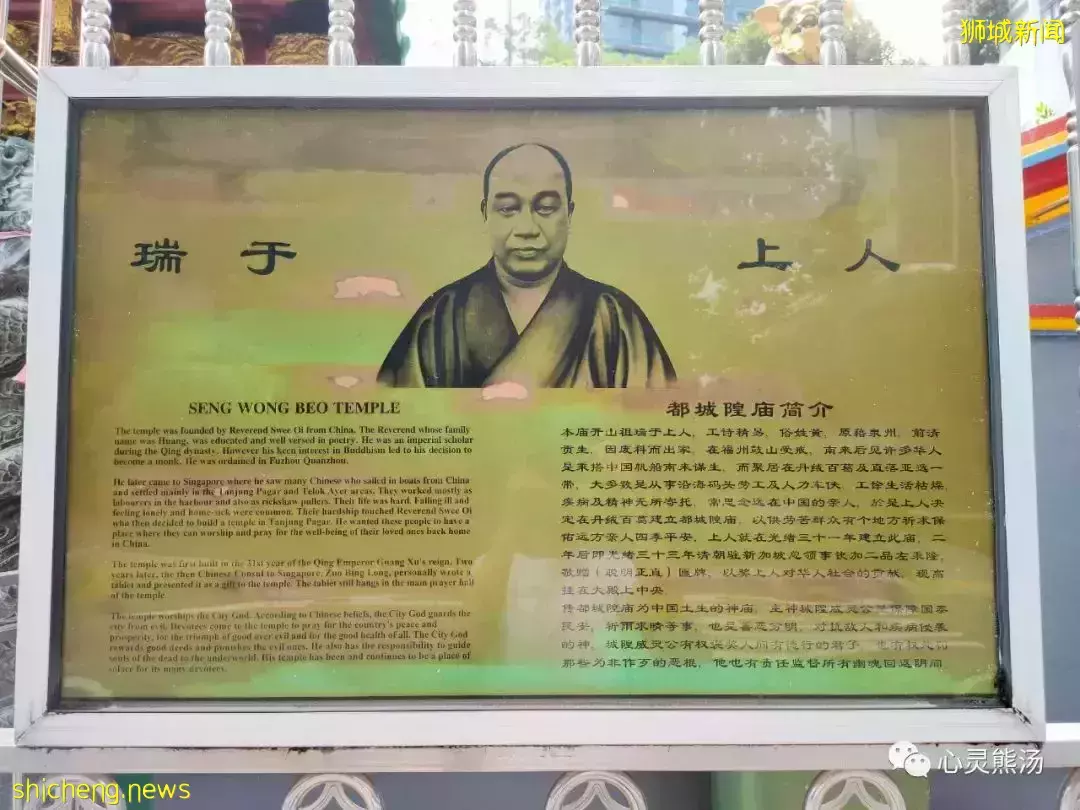 狮城新闻
瑞于 上人
SENG WONG BEO TEMPLE
The temple was founded by Reverend Swee Oi from China. The Reverend whose family
name was Huang, was educated and well versed in poetry. He was an imperial scholar
during the Qing dynasty. However his keen interest in Buddhism led to his decision to
become a monk. He was ordained in Fuzhou Quanzhou.
He later came to Singapore where he saw many Chinese who sailed in boats from China
and settled mainly in the Tanjung Pagar and Telok Ayer areas. They worked mostly as
labourers in the harbour and also as rickshaw pullers. Their life was hard. Falling ill and
feeling lonely and home-sick were common. Their hardship touched Reverend Swee Oi
who then decided to build a temple in Tanjung Pagar. He wanted these people to have a
place where they can worship and pray for the well-being of their loved ones back home
in China.
The temple was first built in the 31st year of the Qing Emperor Guang Xu's reign. Two
years later, the then Chinese Consul to Singapore, Zuo Bing Long, personally wrote a
tablet and presented it as a gift to the temple. The tablet still hangs in the main prayer hall
of the temple.
The temple worships the City God. According to Chinese beliefs, the City God guards the
city from evil. Devotees come to the temple to pray for the country's peace and
prosperity, for the triumph of good over evil and for the good health of all. The City God
rewards good deeds and punishes the evil ones. He also has the responsibility to guide
souls of the dead to the underworld. His temple has been and continues to be a place of
solace for its many devotees.
都城隍庙简介
本庙开山祖瑞于上人，工诗精易，俗姓黄，原籍泉州，前清
贡生，因废科而出家，在福州鼓山受戒，南来后见许多华人
是乘搭中国帆船南来谋生，而聚居在丹绒百葛及直落亚逸一
带，大多数是从事沿海码头劳工及人力车伕，工馀生活枯燥，
疾病及精神无所寄托，常思念远在中国的亲人，於是上人决
定在丹绒百葛建立都城隍庙，以供劳苦群众有个地方祈求保
佑远方亲人四季平安，上人就在光绪三十一年建立此庙，二
年后即光绪三十三年清朝驻新加坡总领事钦加二品左秉隆，
敬赠（聪明正直）匾牌，以奖上人对华人社会的贡献，现高
挂在大殿上中央
都城隍庙为中国土生的神庙，主神城隍威灵公是保障国泰
民安，祈雨求晴等事，也是善恶分明，对抗敌人和疾病侵袭
的神，城隍威灵公有权褒奖人间有德行的君子，也有权处罚
那些为非作歹的恶棍，他也有责任监督所有幽魂回返阴间
心灵熊汤
shicheng.news